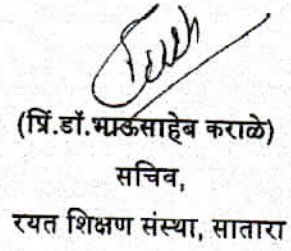 (प्रिं.डॉ.भाऊसाहेब कराळे)
सचिव,
रयत शिक्षण संस्था, सातारा